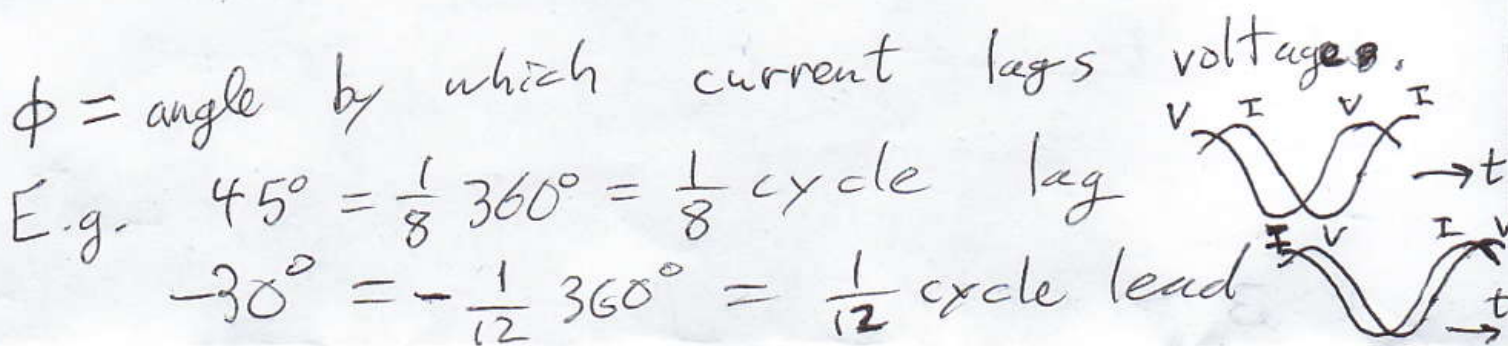 ϕ = angle by which current lags voltage.
V I V I
E.g. 45° = 1/8 360° = 1/8 cycle lag
→ t
I V I V
-30° = - 1/12 360° = 1/12 cycle lead
→ t